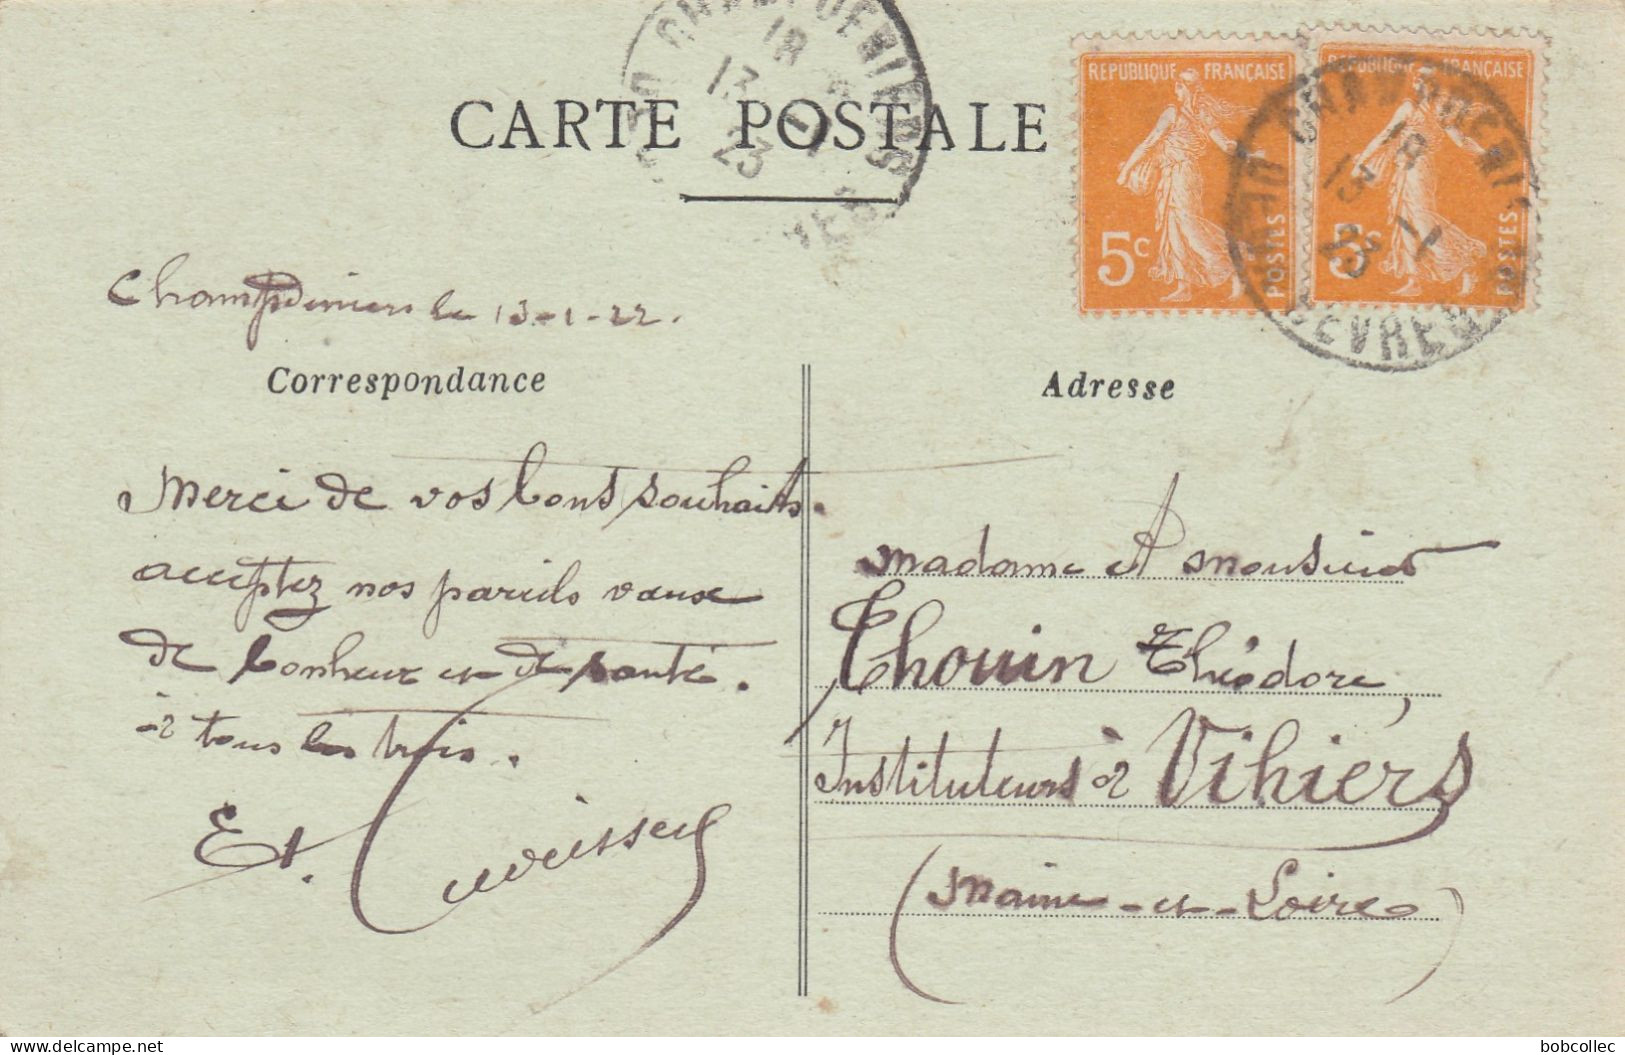 CARTE POSTALE
RÉPUBLIQUE FRANÇAISE
5c
POSTES
RÉPUBLIQUE FRANÇAISE
5c
POSTES
18
13 -1
23
18
13 -1
23
le 13-1-22.
Correspondance
Adresse
Merci de vos bons souhaits.
acceptez nos pareils vœux
de bonheur et de santé.
à tous les trois.
Et.
Madame et Monsieur
Thouin Théodore,
Instituteurs à Vihiers
(Maine-et-Loire)
www.delcampe.net
bobcollec